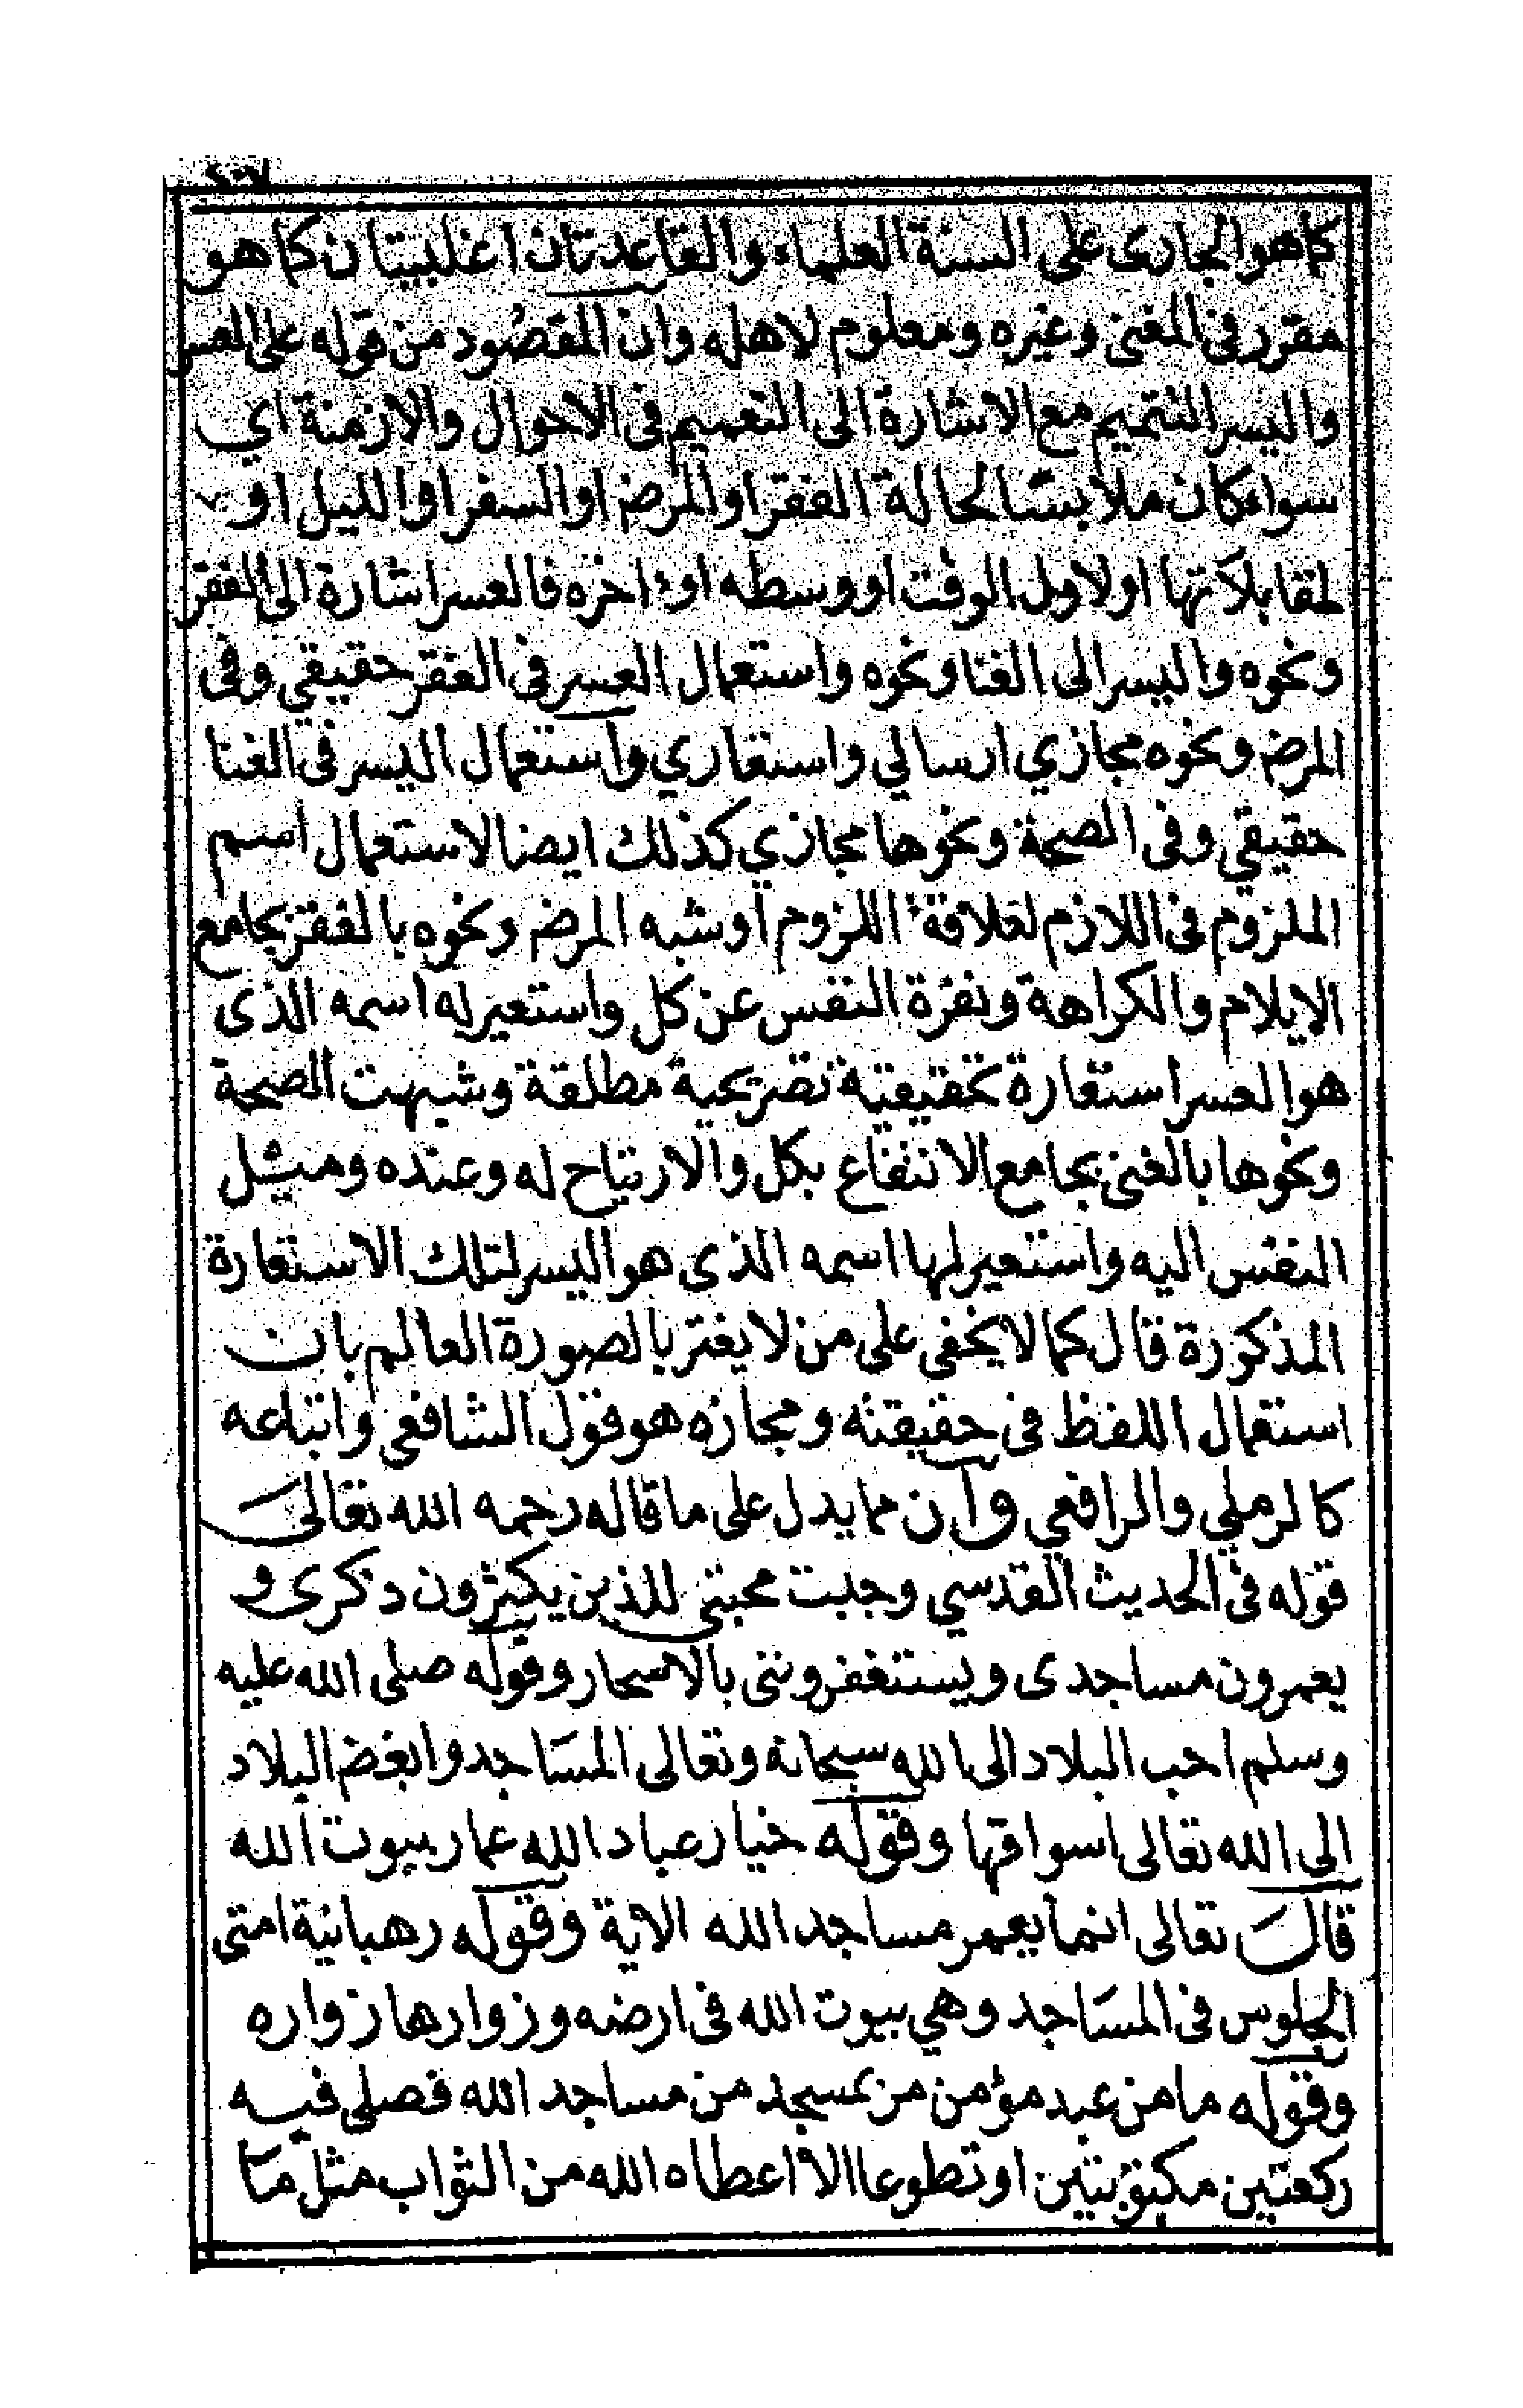 كما هو الجارى على السنة العلماء والقاعدتان اغلبيتان كما هو
مقرر فى المغنى وغيره ومعلوم لاهله وان المقصود من قوله على العسر
واليسر التتميم مع الاشارة الى التعميم فى الاحوال والازمنة اي
سواء كان ملابسا لحالة الفقر او المرض او السفر او الليل او
لمقابلاتها او لاول الوقت او وسطه او ءاخره فالعسر اشارة الى الفقر
ونحوه واليسر الى الغنا ونحوه واستعمال العسر فى الفقر حقيقي وفى
المرض ونحوه مجازي ارسالي واستعاري واستعمال اليسر فى الغنا
حقيقي وفى الصحة ونحوها مجازي كذلك ايضا لاستعمال اسم
الملزوم فى اللازم لعلاقة اللزوم او شبه المرض ونحوه بالفقر بجامع
الايلام والكراهة ونفرة النفس عن كل واستعير له اسمه الذى
هو العسر استعارة تحقيقية تصريحية مطلقة وشبهت الصحة
ونحوها بالغنى بجامع الانتفاع بكل والارتياح له وعنده وميل
النفس اليه واستعير لها اسمه الذى هو اليسر لتلك الاستعارة
المذكورة قال كما لا يخفى على من لا يغتر بالصورة العالم بان
استعمال اللفظ فى حقيقته ومجازه هو قول الشافعي واتباعه
كالرملي والرافعي وان مما يدل على ما قاله رحمه الله تعالى
قوله فى الحديث القدسي وجبت محبتى للذين يكثرون ذكرى و
يعمرون مساجدى ويستغفروننى بالاسحار وقوله صلى الله عليه
وسلم احب البلاد الى الله سبحانه وتعالى المساجد وابغض البلاد
الى الله تعالى اسواقها وقوله خيار عباد الله عمار بيوت الله
قال تعالى انما يعمر مساجد الله الاية وقوله رهبانية امتى
الجلوس فى المساجد وهي بيوت الله فى ارضه وزوارها زواره
وقوله ما من عبد مؤمن مر بمسجد من مساجد الله فصلى فيه
ركعتين مكتوبتين او تطوعا الا اعطاه الله من الثواب مثل ما